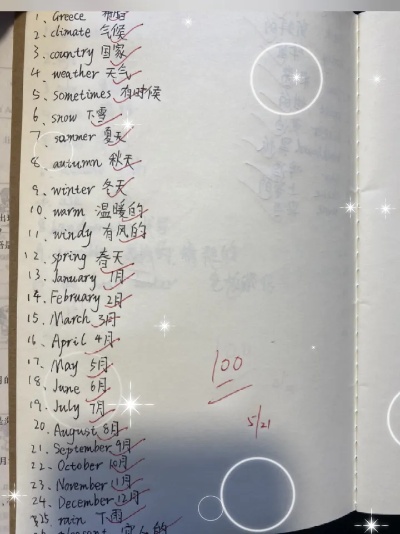 1. Greece 希腊
2. climate 气候
3. country 国家
4. weather 天气
5. sometimes 有时候
6. snow 下雪
7. summer 夏天
8. autumn 秋天
9. winter 冬天
10. warm 温暖的
11. windy 有风的
12. spring 春天
13. January 1月
14. February 2月
15. March 3月
16. April 4月
17. May 5月
18. June 6月
19. July 7月
20. August 8月
21. September 9月
22. October 10月
23. November 11月
24. December 12月
25. rain 下雨
100
5/21